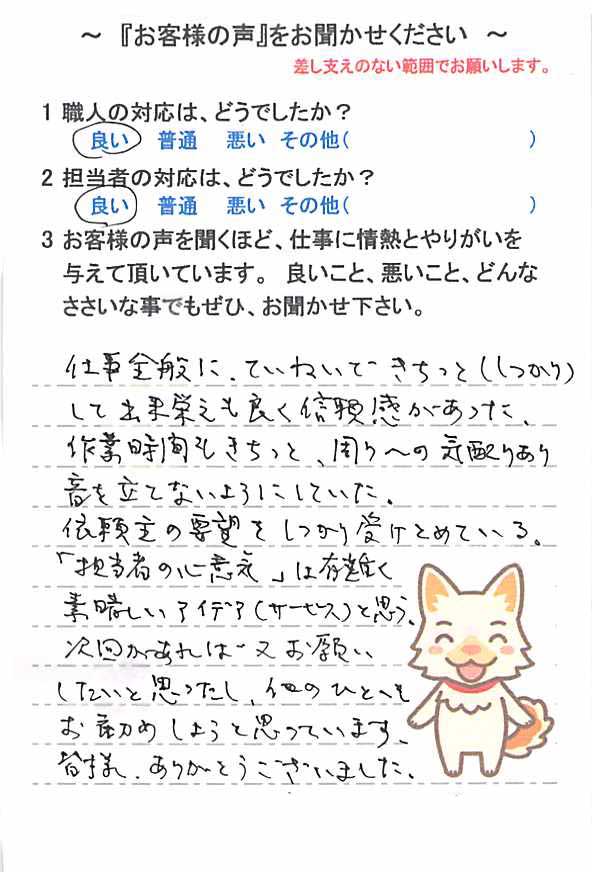 ～ 『お客様の声』をお聞かせください ～
差し支えのない範囲でお願いします。
1 職人の対応は、どうでしたか？
良い 普通 悪い その他( )
2 担当者の対応は、どうでしたか？
良い 普通 悪い その他( )
3 お客様の声を聞くほど、仕事に情熱とやりがいを
与えて頂いています。 良いこと、悪いこと、どんな
ささいな事でもぜひ、お聞かせ下さい。
仕事全般に、ていねいで きちっと(しっかり)
して出来栄えも良く信頼感があった、
作業時間もきちっと、周りへの気配りあり
音を立てないようにしていた。
依頼主の要望をしっかり受けとめている。
「担当者の心意気」は有難く
素晴しいアイデア(サービス)と思う。
次回があれば又お願い
したいと思ったし、他のひとへも
お勧めしようと思っています、
皆様、ありがとうございました。